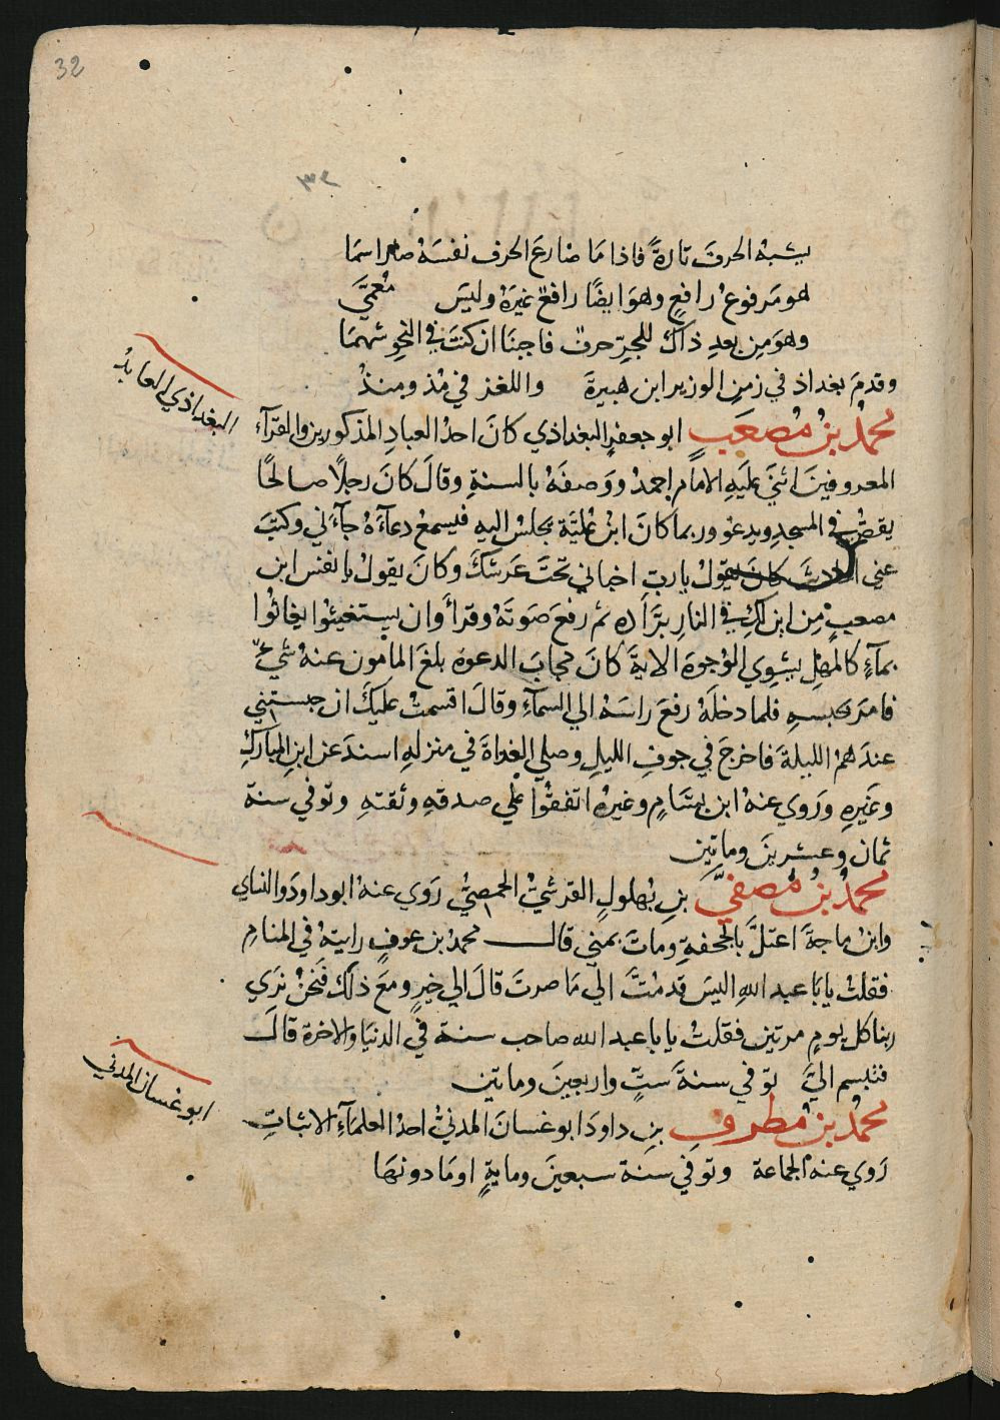 32
٣٢
يشبه الحرف تارةً فاذا مَا ضارعَ الحرف نفسَهُ صار اسمَا
هو مَرفوعُ رافعٍ وهوَ ايضًا رافعٌ غيرَهُ وليسَ مُعمَّى
وهوَ مِن بعدِ ذاكَ للجرِّ حرفٌ فاجبنَا ان كنتَ في النحوِ شهمَا
وقدمَ بغداذ في زمنِ الوزير ابن هبيرةَ واللغز في مُذ ومنذُ
محمدُ بنُ مُصعَبٍ ابو جعفرٍ البغداذي كانَ احدُ العبادِ المذكورين والقرآءِ
البغداذي العابدُ
المعروفينَ اثنَى عليَهِ الامام احمدُ ووَصفَهُ بالسنةِ وقالَ كانَ رجلًا صالحًا
يقصُّ في المسجدِ ويدعُو وربما كانَ ابنُ عُليَّة يجلسُ اليهِ فيسمعُ دعآءَهُ جآءَني وكتبَ
عني الحديثَ كانَ يقولُ يا ربّ اخباني تحتَ عَرشكَ وكانَ يقولُ يا نفسَ ابن
مصعبٍ مِن اين لكِ في النارِ برَّادَه ثم رفعَ صَوتَهُ وقرأَ وان يستغيثُوا يغاثُوا
بمآءٍ كالمُهْلِ يشوِي الوُجوهَ الايةَ كانَ مجابَ الدعوةِ بلغَ المامون عنهُ شيءٌ
فامرَ بحبسهِ فلما دخلَهُ رفعَ راسَهُ الي السمآءِ وقالَ اقسمتُ عليكَ ان حبستني
عندَهمُ الليلةَ فاخرجَ في جوفِ الليلِ وصلي الغداةَ في منزلهِ اسندَ عن ابنِ المباركِ
وغَيرِهِ ورَوي عنهُ ابن بهتامٍ وغيرهُ اتفقُوا علي صدقهِ وثقتهِ وتوفي سنة
ثمان وعشرينَ وماتَين
محمدُ بنُ مُصفَّى بنِ بُهلولٍ القرشيُّ الحمصيُّ رَوي عنهُ ابو داودَ والنساي
وابنُ ماجةَ اعتلَّ بالجحفةِ وماتَ بمني قال محمدُ بن عوفٍ رايتهُ في المنامِ
فقلتُ يابَا عبد اللهِ اليسَ قد مُتَّ الي مَا صرتَ قالَ الي خيرٍ ومعَ ذلكَ فنحنُ نرَي
ربنا كل يومٍ مرتين فقلتُ يا با عبد الله صاحب سنة في الدنيَا والاخرة قالَ
فتبسم اليَّ توفي سنةَ ستٍّ واربعينَ وماتين
محمدُ بنُ مُطرفٍ بنِ داودَ ابو غسانَ المدنيُّ احدُ العلمآءِ الاثباتِ
ابو غسان المدني
رَوي عنهُ الجماعة وتوفي سنة سبعينَ ومايةٍ اومَا دونهَا